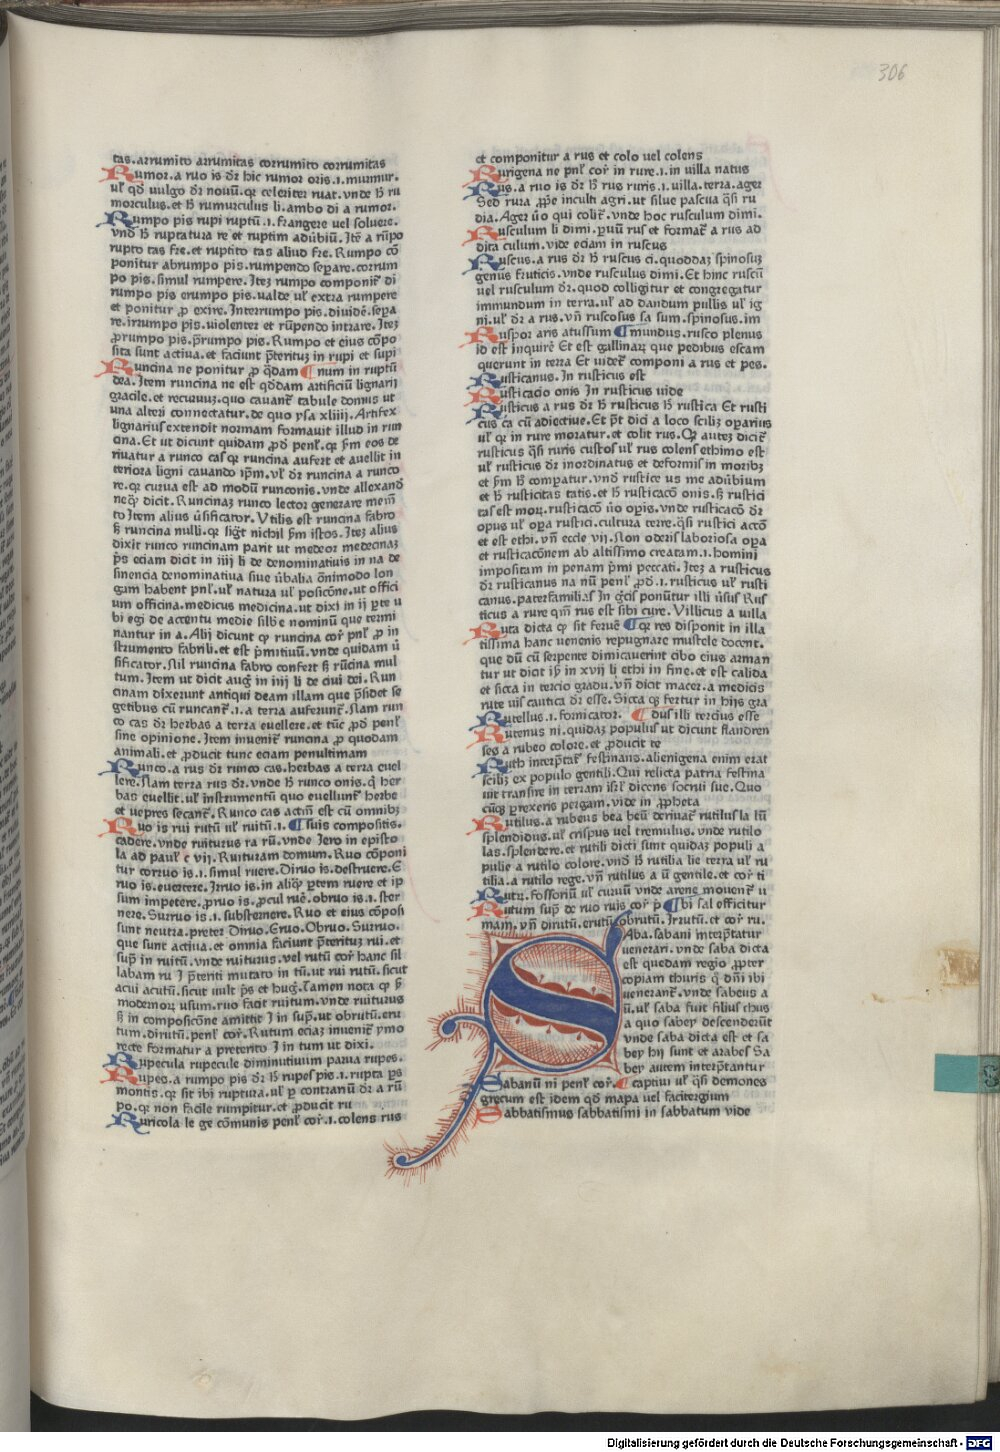 306
tas.arrumito arrumitas corrumito corrumitas
Rumor.a ruo is dr̄ hic rumor oris.i.murmur.
ul̓ qd̓ uulgo dr̄ nouū.qr celeriter ruat.vnde h̓ ru
morculus.et h̓ rumurculus li.ambo di a rumor.
Rumpo pis rupi ruptū.i.frangere uel soluere.
vnd̓ h̓ ruptatura re et ruptim adūbiū. Itē a rūpo
rupto tas fre.et ruptito tas aliud fre. Rumpo cō
ponitur abrumpo pis.rumpendo sep̱are.corrum
po pis.simul rumpere. Iteʒ rumpo componit̓ di
rumpo pis erumpo pis.valde ul̓ extra rumpere
et ponitur ꝓ exire. Interrumpo pis.diuidē.sepa
re.irrumpo pis.uiolenter et rūpendo intrare. Iteʒ
ꝓrumpo pis.p̄rumpo pis. Rumpo et eius cōpo
sita sunt actiua.et faciunt p̄teritūʒ in rupi et supi
Runcina ne ponitur ꝓ qd̓am ¶ num in ruptū
dea. Item runcina ne est qd̓dam artificiū lignarij
gracile.et recuruuʒ.quo cauant̓ tabule domus ut
una alteri connectatur.de quo ysa xliiij. Artifex
lignarius extendit normam formauit illud in run
cina. Et ut dicunt quidam ꝓd̓ penl̓.qr p̄m eos de
riuatur a runco cas qr runcina aufert et auellit in
teriora ligni cauando ip̄m. vl̓ dr̄ runcina a runco
re.qr curua est ad modū runconis.vnde allexand̓
neqʒ dicit. Runcinaʒ runco lector generare mem̄
to Item alius ūsificator. Vtilis est runcina fabro
ſʒ runcina nulli.qr ligt̓ nichil p̄m istos. Iteʒ alius
dixit runco runcinam parit ut medeor medecinaʒ
p̄s eciam dicit in iiij li de denominatiuis in na de
sinencia denominatiua siue ūbalia ōnimodo lon
gam habent pnl̓.ul̓ natura ul̓ posicōne.ut offici
um officina.medicus medicina.ut dixi in ij p̱te u
bi egi de accentu medie sill̓e nominū que termi
nantur in a. Alij dicunt qꝫ runcina cor̓ pnl̓ ꝓ in
strumento fabrili.et est p̄mitiuū.vnde quidam ū
sificator. Nil runcina fabro confert ſʒ rūcina mul
tum. Item ut dicit aug̓ in iiij li de ciui dei. Run
cinam dixerunt antiqui deam illam que p̄sidet se
getibus cū runcant̓.i.a terra auferunt̓. Nam run
co cas dr̄ herbas a terra euellere.et tūc ꝓd̓ penl̓
sine opinione. Item inuenit̓ runcna ꝓ quodam
animali.et ꝓducit tunc eciam penultimam
Runco.a rus dr̄ runco cas.herbas a terra euel
lere. Nam terra rus dr̄.vnde h̓ runco onis.q̓ her
bas euellit.ul̓ instrumentū quo euellunt̓ herbe
et uepres secant̓. Runco cas actiū est cū omnibʒ
Ruo is rui rutū ul̓ ruitū.i. ¶ suis compositis.
cadere.vnde ruiturus ra rū.vnde Jero in episto
la ad paul̓ c vij. Ruituram domum. Ruo cōponi
tur corruo is.i.simul ruere. Diruo is.destruere. E
ruo is.euertere. Irruo is.in aliqʒ p̱tem ruere et ip
sum impetere.ꝓruo is.ꝓcul ruē.obruo is.i.ster
nere. Surruo is.i.substernere. Ruo et eius cōposi
sunt neutra.preter Diruo. Eruo. Obruo. Surruo.
que sunt actiua.et omnia faciunt p̄teritūʒ rui.et
sup̄ in ruitū.vnde ruiturus.vel rutū cor̓ hanc sil
labam ru J p̄teriti mutato in tū.ut rui rutū.sicut
acui acutū.sicut uult p̄s et hug̓. Tamen nota qꝫ ſʒ
modernorʒ usum.ruo facit ruitum.vnde ruiturus
ſʒ in composicōne amittit J in sup̄.ut obrutū.eru
tum.dirutū.penl̓ cor̓. Rutum eciaʒ inuenit̓ ymo
recte formatur a preterito J in tum ut dixi.
Rupecula rupecule diminutiuum parua rupes.
Rupes.a rumpo pis dr̄ h̓ rupes pis.i.rupta p̱s
montis.qr sit ibi ruptura.ul̓ p̱ contranū dr̄ a rū
po.qr non facile rumpitur.et ꝓducit ru
Ruricola le ge cōmunis penl̓ cor̓.i.colens rus
et componitur a rus et colo uel colens
Rurigena ne pnl̓ cor̓ in rure.i.in uilla natus
Rus.a ruo is dr̄ h̓ rus ruris.i.uilla.terra.ager
Sed rura ꝓp̱e inculti agri.ut silue pascua q̓si ru
dia. Ager ūo qui colit̓.vnde hoc rusculum dimi.
Rusculum li dimi.p̱uū rus et format̓ a rus ad
dita culum.vide eciam in ruscus
Ruscus.a rus dr̄ h̓ ruscus ci.quoddaʒ spinosuʒ
genus fruticis.vnde rusculus dimi. Et hinc ruscū
uel rusculum dr̄.quod colligitur et congregatur
immundum in terra.ul̓ ad dandum pullis ul̓ ig
ni.ul̓ dr̄ a rus.vn̄ ruscosus sa sum.spinosus.im
Ruspor aris atussum ¶ mundus.rusco plenus
id est inquirē Et est gallinarʒ que pedibus escam
querunt in terra Et uidet̓ componi a rus et pes.
Rusticanus. In rusticus est
Rusticacio onis In rusticus uide
Rusticus a rus dr̄ h̓ rusticus h̓ rustica Et rusti
cus ca cū adiectiue. Et p̄t dici a loco sciliʒ op̱arius
ul̓ qr in rure moratur.et colit rus. Qr auteʒ dicit̓
rusticus q̓si ruris custos ul̓ rus colens ethimo est
ul̓ rusticus dr̄ inordinatus et deformis in moribʒ
et p̄m h̓ comp̱atur.vnd̓ rustice us me adūbium
et h̓ rusticitas tatis.et h̓ rusticacō onis.ſʒ rustici
tas est morʒ.rusticacō ūo op̱is.vnde rusticacō dr̄
opus ul̓ op̱a rustici.cultura terre.q̓si rustici actō
et est ethi.vn̄ eccle vij. Non oderis laboriosa op̱a
et rusticacōnem ab altissimo creatam.i.homini
impositam in penam p̄mi peccati. Iteʒ a rusticus
dr̄ rusticanus na nū penl̓ ꝓd̓.i.rusticus ul̓ rusti
canus.paterfamilias In g̓cis ponūtur illi ūsus Rus
ticus a rure qm̄ rus est sibi cure. Villicus a uilla
Ruta dicta qꝫ sit feruē ¶ qr res disponit in illa
tissima hanc uenenis repugnare mustele docent.
que dū cū serpente dimicauerint cibo eius arman
tur ut dicit ysi̓ in xvij li ethi in fine.et est calida
et sicca in tercio gradu.vn̄ dicit macer.a medicis
rute uis caustica dr̄ esse. Sicca qꝫ fertur in hijs gra
Rutellus.i.fornicator. ¶ dus illi tercius esse
Rutenus ni.quidaʒ populus ut dicunt flandren
ses a rubeo colore.et ꝓducit te
Ruth interp̄tat̓ festinans.alienigena enim erat
sciliʒ ex populo gentili. Qui relicta patria festina
uit transire in terram isrl̓ dicens socrui sue. Quo
cūqʒ p̱rexeris pergam.vide in ꝓpheta
Rutilus.a rubeus bea beū deriuat̓ rutilus la lū
splendidus.ul̓ crispus uel tremulus.vnde rutilo
las.splendere.et rutili dicti sunt quidaʒ populi a
pulie a rutilo colore.vnd̓ h̓ rutilia lie terra ul̓ ru
tilia.a rutilo rege.vn̄ rutilus a ū gentile.et cor̓ ti
Rutrʒ.fossoriū ul̓ curuū vnde arene mouent̓ u
Rutum sup̄ de ruo ruis cor̓ p̓ ¶ bi sal efficitur
mam.vn̄ dirutū.erutū obrutū. Irrutū.et cor̓ ru.
SAba.sabani interp̄tatur
uenerari.vnde saba dicta
est quedam regio ꝓpter
copiam thuris q̓ dn̄i ibi
uenerant̓.vnde sabeus a
ū.ul̓ saba fuit filius chus
a quo sabey descenderūt
vnde saba dicta est et sa
bey hij sunt et arabes Sa
bey autem interp̄tantur
Sabanū ni penl̓ cor̓. ¶ captiui ul̓ q̓si demones
grecum est idem qd̓ mapa uel facitergium
Sabbatismus sabbatismi in sabbatum vide
Digitalisierung gefördert durch die Deutsche Forschungsgemeinschaft - DFG